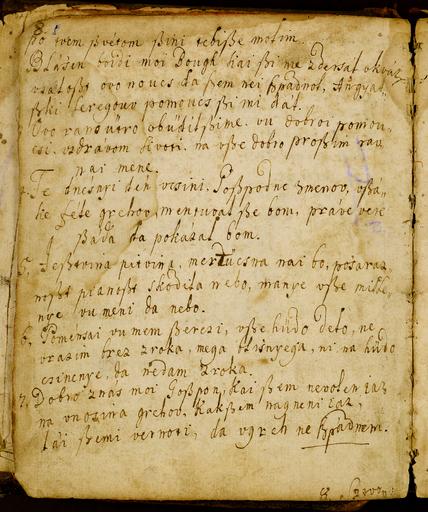 po tvem ßvetom ßini tebiße molim.
Blasen boidi moi Dough kai ßi me zdersal
vsaloßt ovo no vcs da ßem nei ßpadnol, Angyal
ßki peregouv pomoucs ßi mi dal.
Ovo rano utro obüditßime. vu dobroi pomou
csi. vzdravom sivoti. na vße dobro proßim rav
nai mene.
4. Te dnesnyi den vcsini. Goßpodne
ke féle grehov, mentüval ße bom, práve vere
ßada da pokázal bom.
5. Jeßtvina pitvina, mertücsna nai bo, posaraz
noßt pianoßt skodila nebo, manye vße milke,
nye vu meni da nebo.
6. Pomensai vu mem ßerczi, vße hüdo delo, ne
vrazim brez zroka, mega blisnyega, ni na hüdo
csinenye, da nedam zroka.
7. Dobro znas moi Goßpon, kai ßem nevolen
na vnosina grehov. kakßem nagneni
dai ßemi vernoti, da vgreh ne ßpádnem.
8.